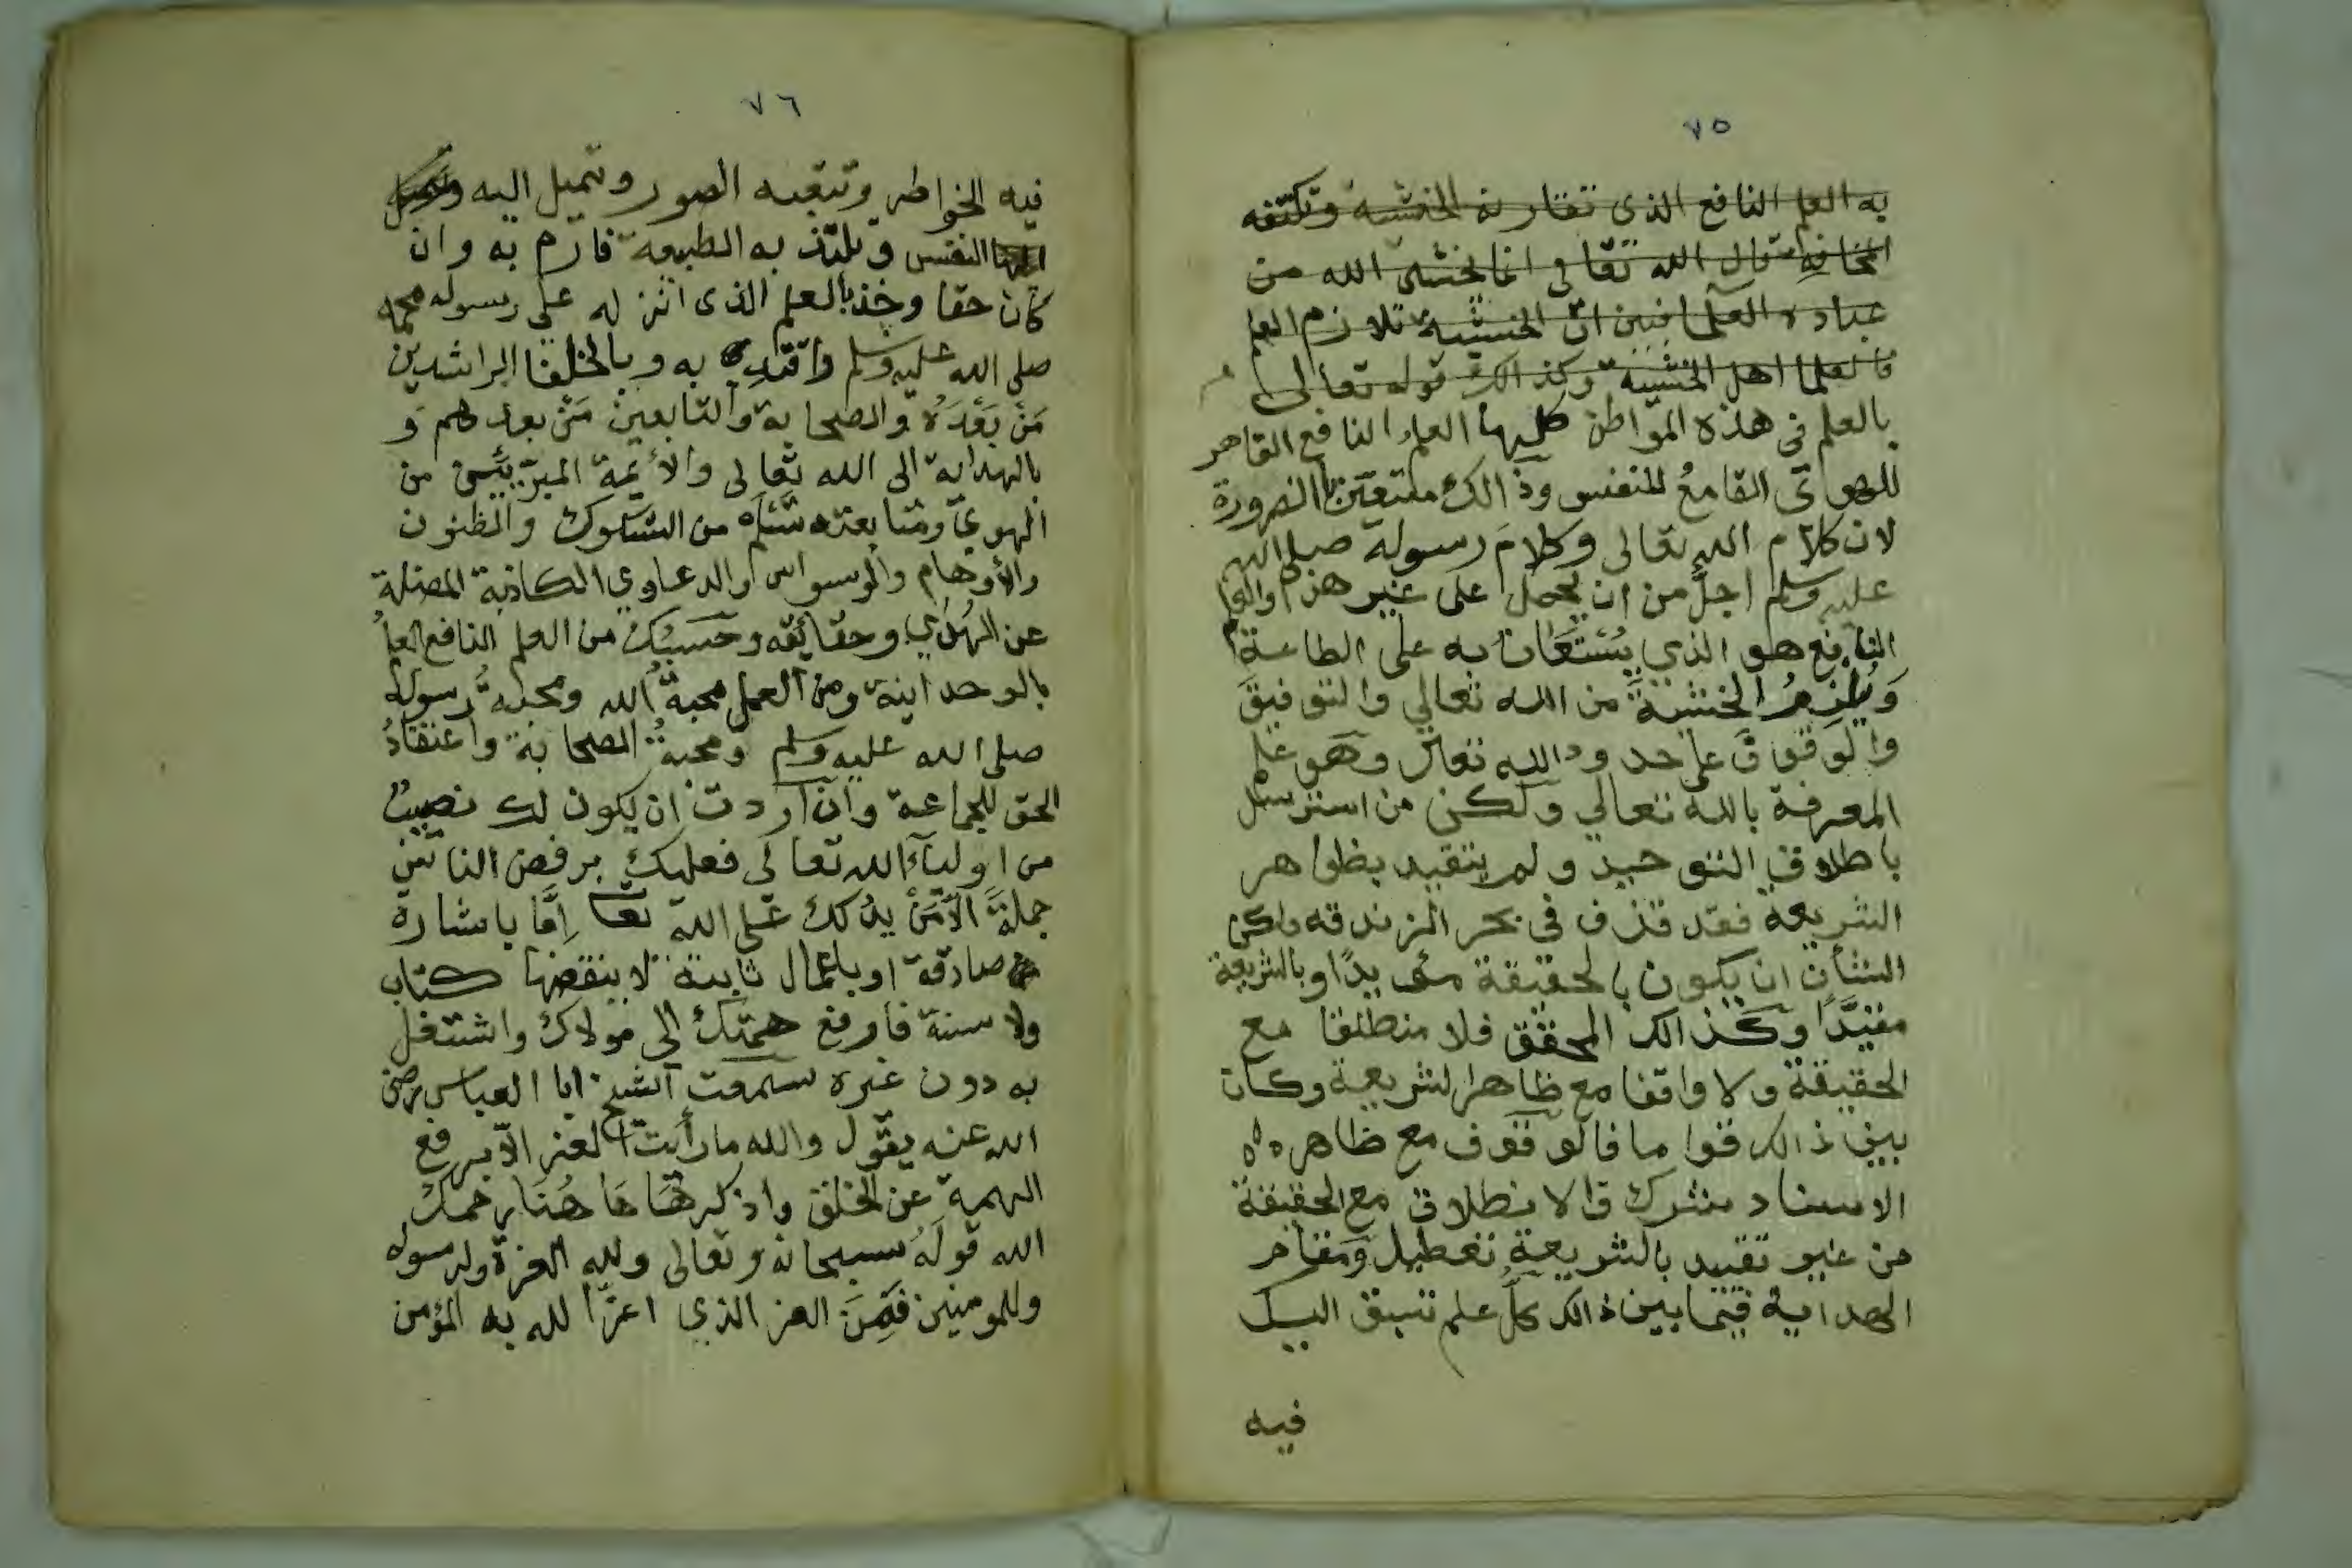 ٧٥
به العلم النافع الذى تقارنه الخشية وتكتنفه
المخافة قال الله تعالى انما يخشى الله من
عباده العلما فبين ان الخشية تلازم العلم
فالعلما اهل الخشية وكذالك قوله تعالى
بالعلم فى هذه المواطن كليها العلم النافع القاهر
للهوائ القامعُ للنفس وذالك متعين بالضرورة
لان كلام الله تعالى وكلامَ رسوله صلى الله
عليه وسلم اجلُّ من ان يحمل على غير هذا والعلم
النافع هو الذي يُسْتَعَانُ به على الطاعة
وَيُلزمُ الخشيةَ من الله تعالي والتوفيقَ
والوقوفَ على حدود الله تعالى وهو علم
المعرفة بالله تعالي ولكن من استرسل
باطلاق التوحيد ولم يتقيد بظواهر
الشريعة فقد قذف فى بحر الزندقه ولكن
الشأن ان يكون بالحقيقة مئيدًا وبالشريعة
مقيَّدًا وكذالك المحقق فلا منطلقا مع
الحقيقة ولا واقفا مع ظاهر الشريعة وكان
بين ذالك قواما فالوقوف مع ظاهره
الاسناد شرك والانطلاق مع الحقيقة
من غير تقييد بالشريعة تعطيل ومقام
الهداية فيما بين ذالك كلُّ علم تسبق اليك
فيه
٧٦
فيه الخواطر وتتبعه الصور وتميل اليه
النفس وتلتذ به الطبيعة فارم به وان
كان حقا وخذ بالعلم الذى انزله على رسوله محمد
صلى الله عليه وسلم واقتدِ به وبالخلفا الراشدين
مَنْ بَعْدَهُ والصحابة والتابعين مَنْ بعدهم و
بالهداية الى الله تعالى والأئمة المبرّئين من
الهويّ ومتابعته تسلم من الشكوك والظنون
والأوهام والوسواس والدعاوي الكاذبة المضلة
عن الهُدَي وحقائقه وحَسبُكَ من العلم النافع العلمُ
بالوحدانية ومن العمل محبةُ الله ومحبةُ رسوله
صلى الله عليه وسلم ومحبةُ الصحابة واعتقادُ
الحق للجماعة وان اردت ان يكون لك نصيبٌ
من اوليآء الله تعالى فعليك برفض الناس
جملةً الاّ مَنْ يدُلك على الله تعا إمَّا باشارة
صادقة او باعمال ثابتة لا ينقضها كتاب
ولا سنة فارفع همتك الى مولاك واشتغل
به دون غيره سمعت الشيخ ابا العباس رضى
الله عنه يقول والله ما رأيتُ العز الاّ برفع
الهمة عن الخلق واذكر هَا هُنَا رحمك
الله قولَهُ سبحانه وتعالى ولله العزة ولرسوله
وللمومنين فَمِنَ العز الذي اعزَّ الله به المؤمن